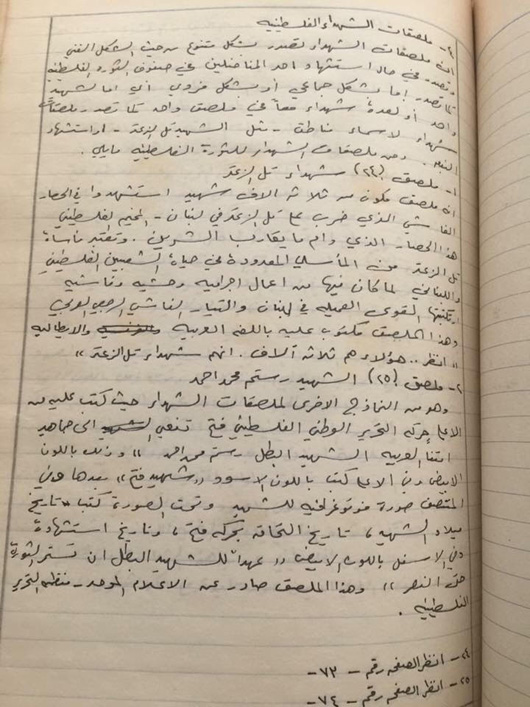 ٢- ملصقات الشهداء الفلسطينية
ان ملصقات الشهداء تصدر بشكل متنوع من حيث الشكل الفني
وتصدر في حال استشهاد احد المناضلين في صفوف الثورة الفلسطينية
كما تصدر اما بشكل جماعي أو بشكل فردي أي اما لشهيد
واحد أو لعدة شهداء معاً في ملصق واحد كما تصدر ملصقات
شهداء لاسماء مناطق - مثل الشهيد تل الزعتر - او استشهاد
ومن ملصقات الشهداء للثورة الفلسطينية مايلي.
١- ملصق (٢٤) شهداء تل الزعتر
انه ملصق مكون من ثلاثة الاف شهيد استشهدوا في الحصار
الفاشي الذي ضرب على تل الزعتر في لبنان - المخيم الفلسطيني
هذا الحصار الذي دام ما يقارب الشهرين. وتعتبر مأساة
تل الزعتر من المآسي المعدودة في حياة الشعبين الفلسطيني
واللبناني لما كان فيها من اعمال اجرامية وحشية وفاشية
ارتكبتها القوى العميلة في لبنان والتيار الفاشي الرجعي العربي
وهذا الملصق مكتوب عليه باللغة العربية والايطالية
"انظر.. هؤلاء هم ثلاثة آلاف. انهم شهداء تل الزعتر"
٢- ملصق (٢٥) الشهيد رستم محمد احمد
وهو من النماذج الاخرى لملصقات الشهداء حيث كتب عليه من
الاعلى حركة التحرير الوطني الفلسطيني فتح تنعي الى جماهير
امتنا العربية الشهيد البطل رستم محمد احمد " وذلك باللون
الابيض وفي الاعلى كتب باللون الاسود "شهيد فتح" بعدها وفي
المنتصف صورة فوتوغرافية للشهيد وتحت الصورة كتب "تاريخ
ميلاد الشهيد، تاريخ التحاقه بحركة فتح، وتاريخ استشهاده
وفي الاسفل باللون الابيض "عهداً للشهيد البطل ان تستمر الثورة
حتى النصر" وهذا الملصق صادر عن الاعلام الموحد - منظمة التحرير
الفلسطينية.
٢٤- انظر الصفحة رقم - ٧٣ -
٢٥- انظر الصفحة رقم - ٧٤ -